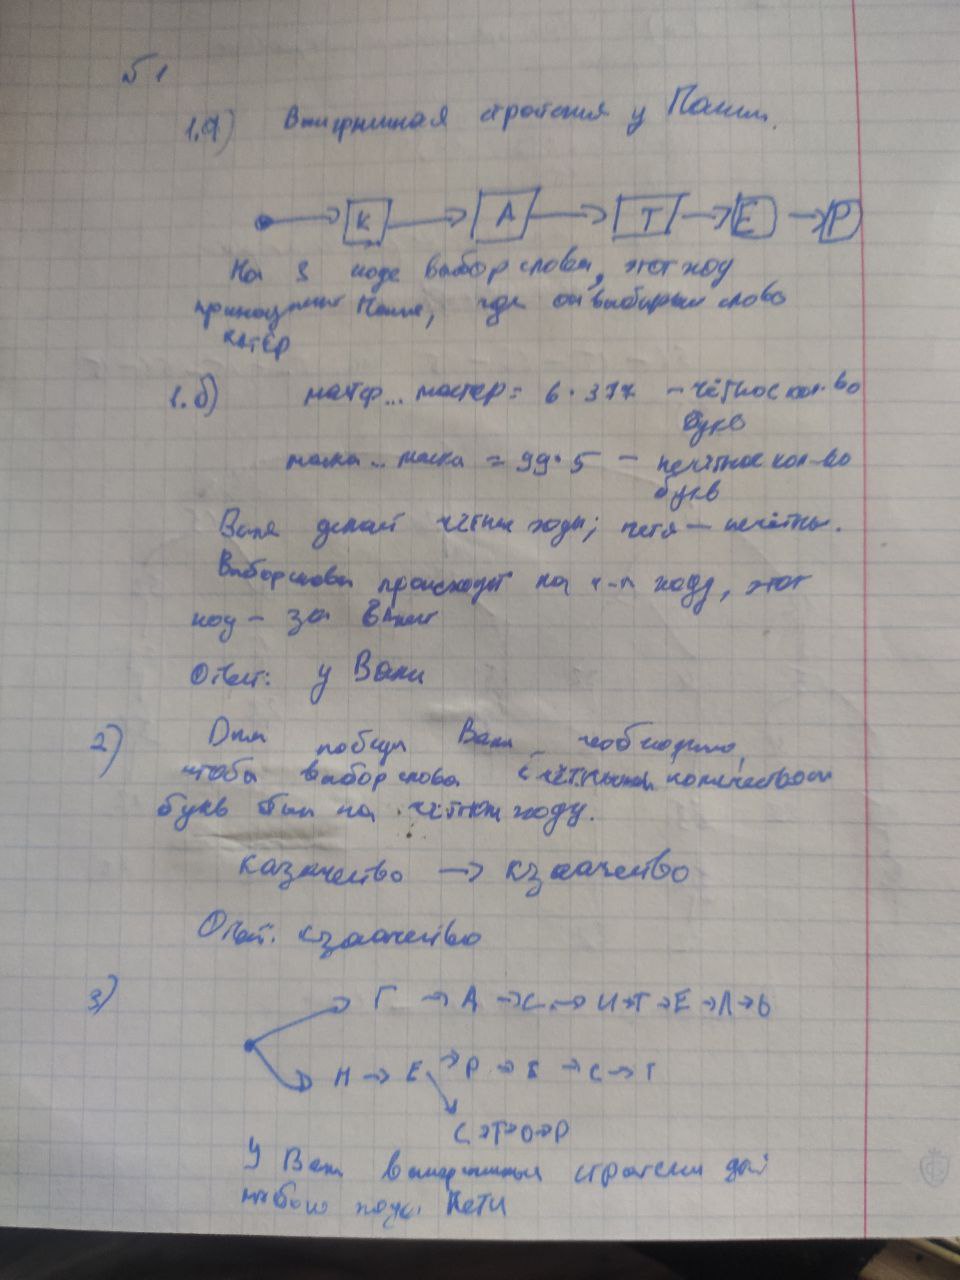 Б 1
1.а) Выигрышная стратегия у Паши.
К А Т Е Р
На 3 ходе выбор слова, этот ход
принадлежит, где он выбирает слово
катер
1.б) мастер = 6 · 377 – чётное кол-во
букв
маска ... маска = 99 · 5 – нечётное кол-во
букв
Ваня делает чётные ходы; Петя – нечётны.
Выбор слова происходит на ходу, этот
ход – за Ваней
Ответ: у Вани
2) Для победы Вани необходимо,
чтобы выбор слова с чётным количеством
букв был на чётном ходу.
казачество → кзаачество
Ответ. кзаачество
3) Г → А → С → И → Т → Е → Л → Ь
Н → Е → Р → Е → С → Т
С → Т → О → Р
У Вани выигрышная стратегия для
любого хода Пети